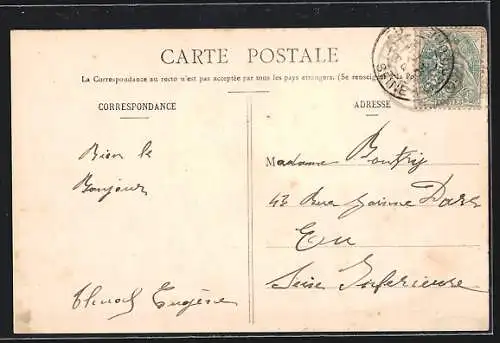 CARTE POSTALE
La Correspondance au recto n'est pas acceptée par tous les pays étrangers. (Se renseigner à la Poste)
CORRESPONDANCE
ADRESSE
Bien le
Bonjour
Eugène
Madame
43 Rue
Eu
Seine Inférieure
SEINE
POSTES